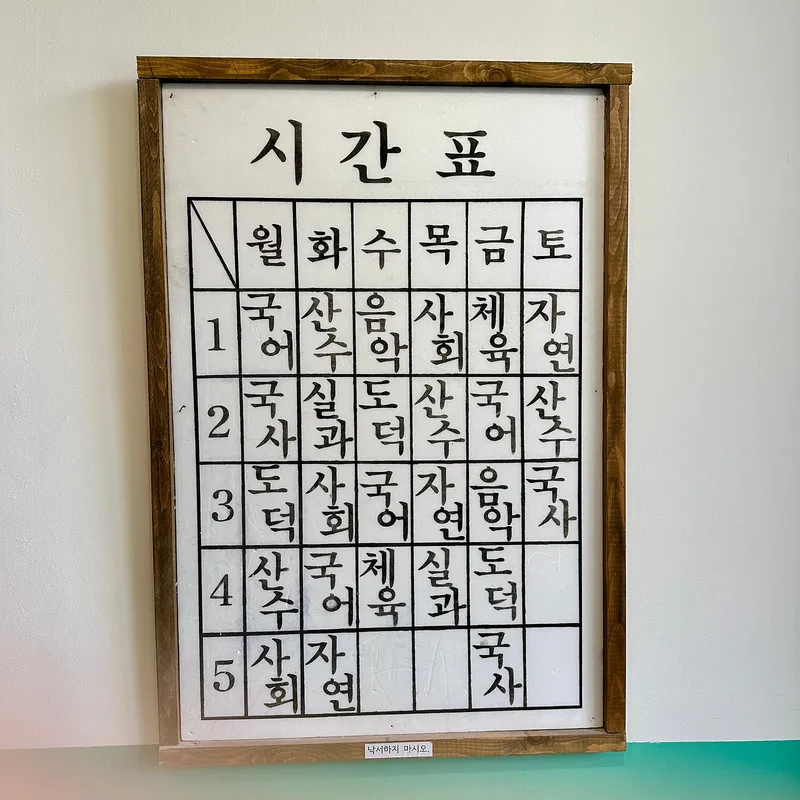 시간표
월 화 수 목 금 토
1 국어 산수 음악 사회 체육 자연
2 국사 실과 도덕 산수 국어 산수
3 도덕 사회 국어 자연 음악 국사
4 산수 국어 체육 실과 도덕
5 사회 자연 국사
낙서하지 마시오.